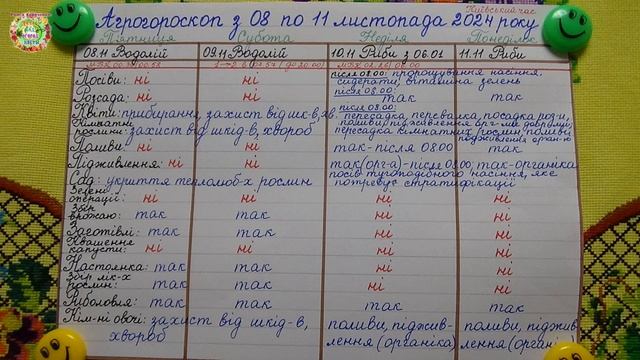 Київський час
Агрогороскоп з 08 по 11 листопада 2024 року
П'ятниця Субота Неділя Понеділок
08.11 Водолій 09.11 Водолій 10.11 Риби з 06.01 11.11 Риби
Посіви: ні ні після 08.00: пророщування насіння,
сидерати, вітамінна зелень
Розсада: ні ні після 08.00: так так
Квіти: прибирання, захист від шк-в, хв. після 08.00: пересадка, перевалка, посадка
Кімнатні рослини: захист від шкід-в, хвороб
пересадка кімнатних рослин, поливи
Поливи: ні ні так-після 08.00 так
Підживлення: ні ні так(орг-а)-після 08.00; так-органіка
Сад: укриття теплолюб-х рослин посів тугоподібного насіння, яке
потребує стратифікації
Зелені операції: ні ні ні ні
Збір врожаю: так так ні ні
Заготівлі: так так ні ні
Квашення капусти: ні ні ні ні
Настоянка: так так ні ні
Збір лік-х рослин: так так ні ні
Риболовля: так так так так
Кім-ні овочі: захист від шкід-в, хвороб поливи, піджив-лення (органіка) поливи, піджив-лення (органі